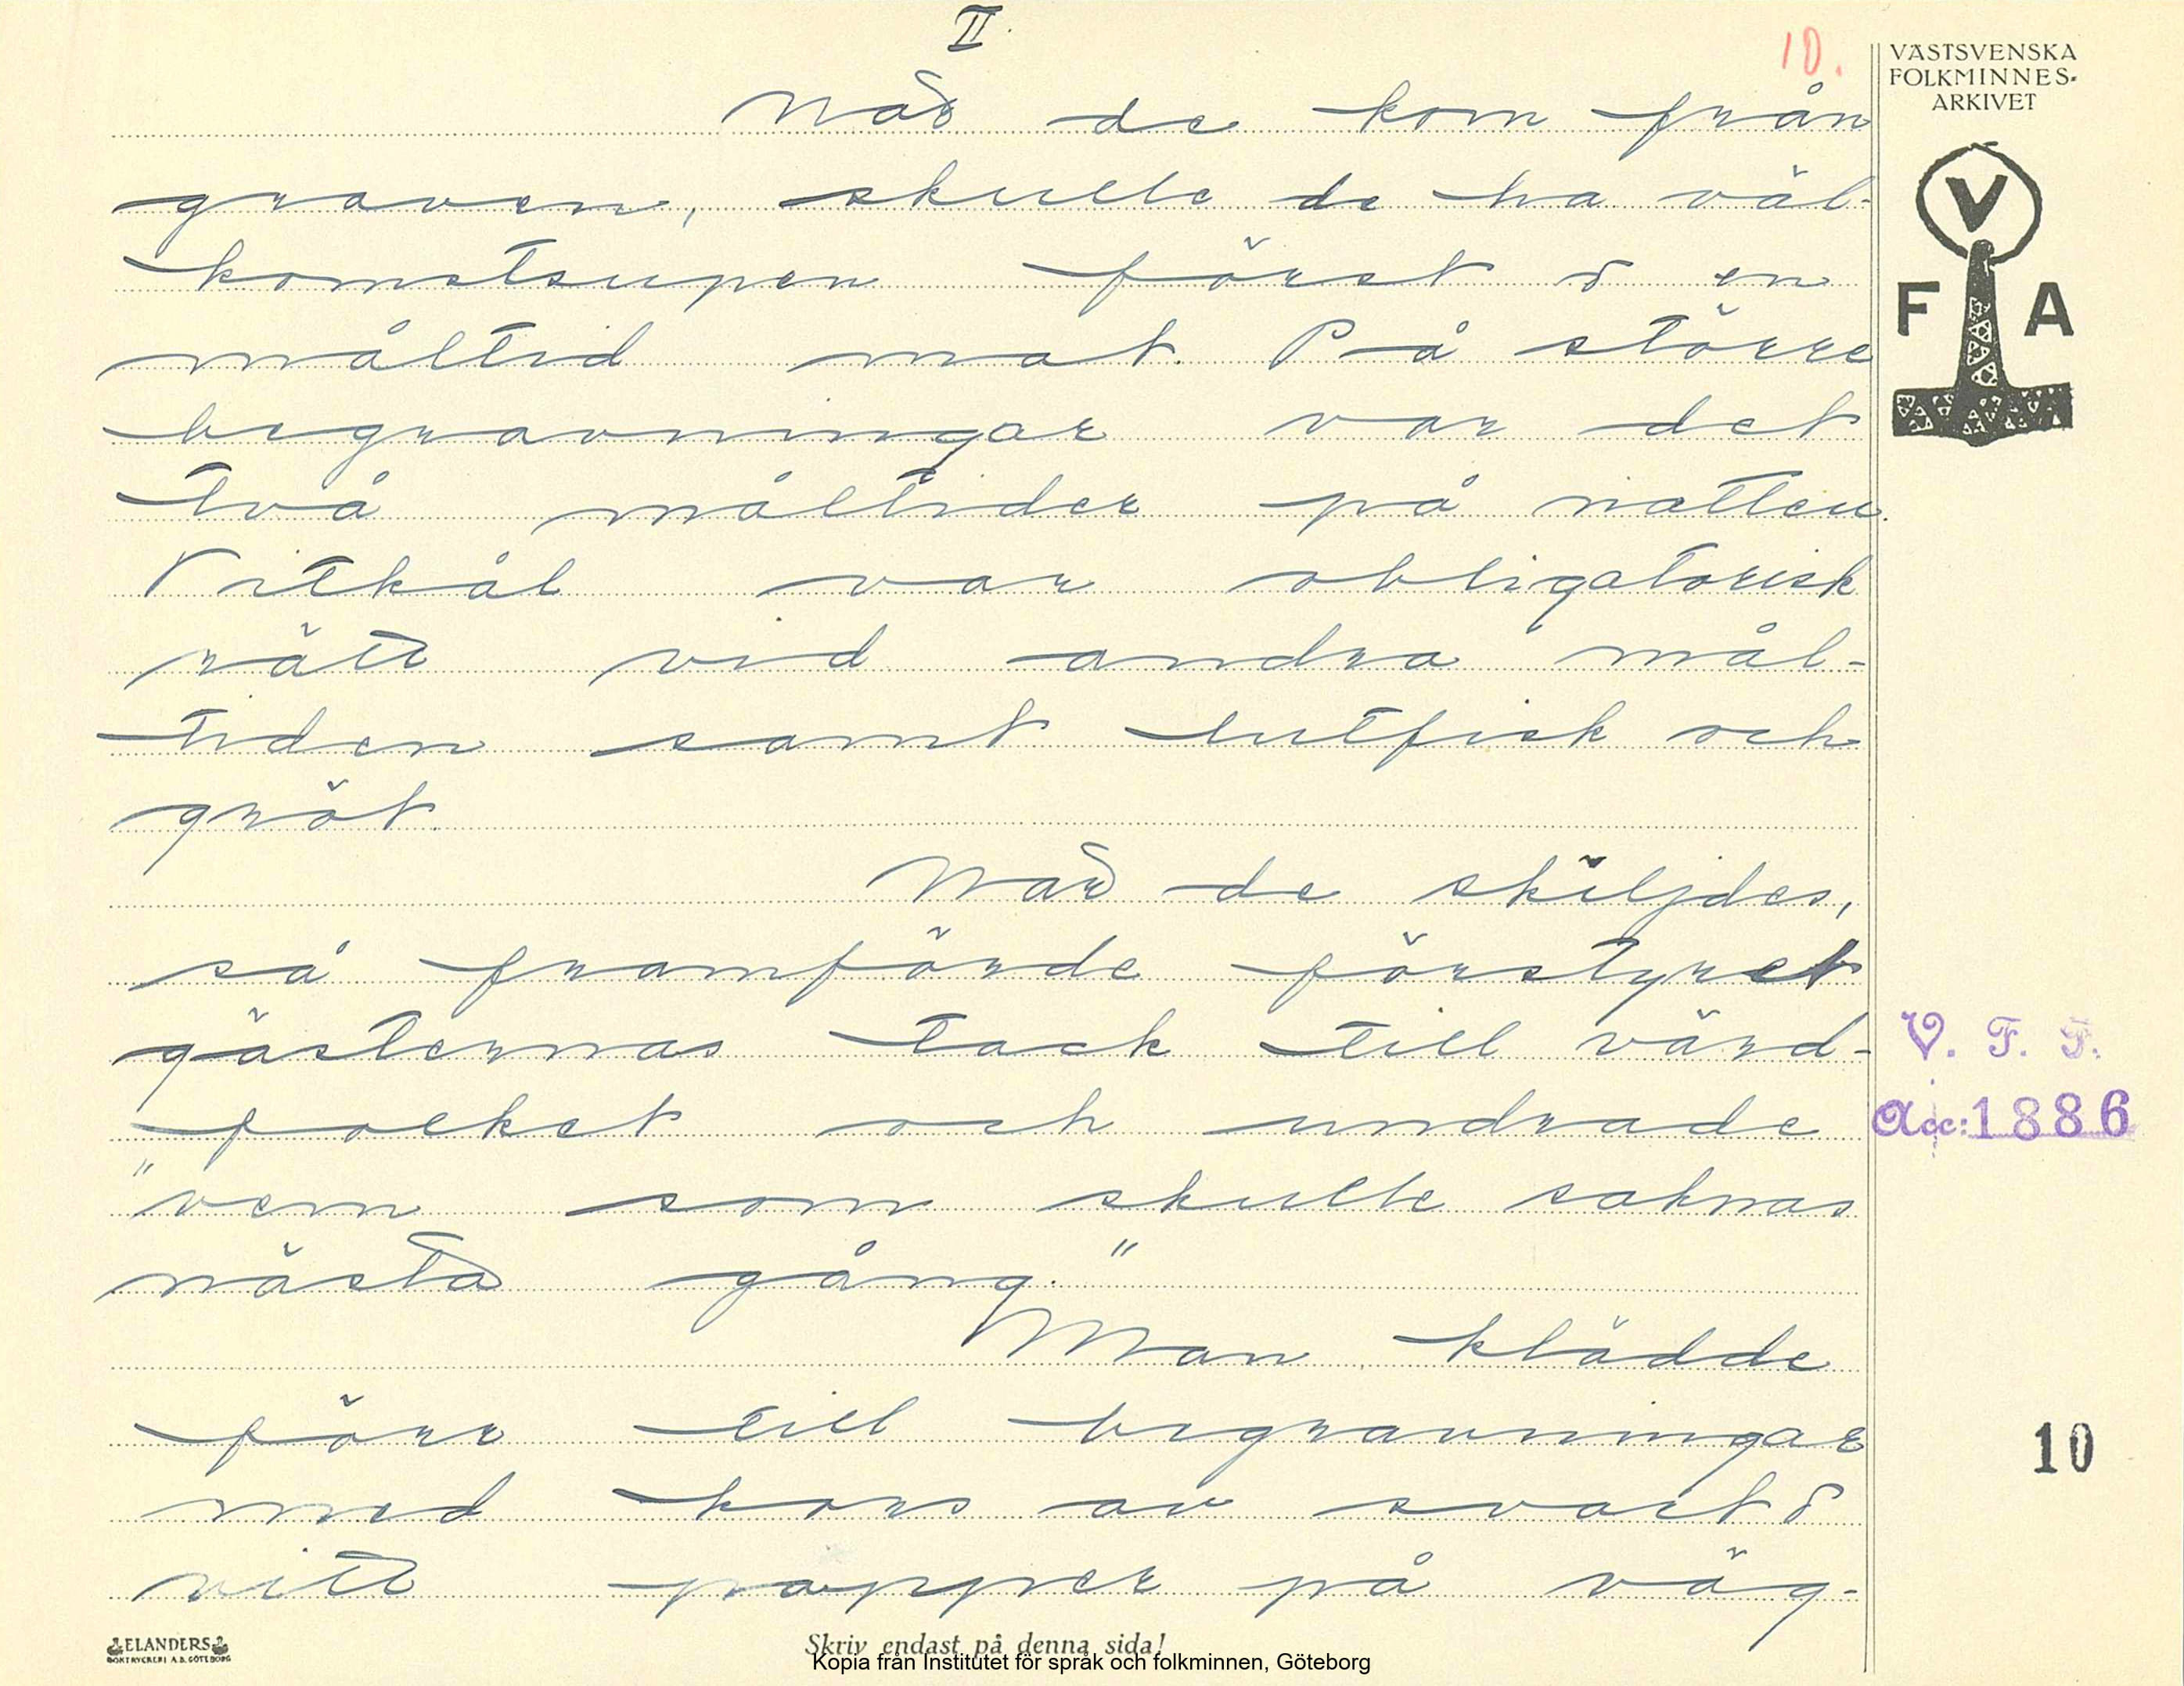 II.
10.
VÄSTSVENSKA
FOLKMINNES-
ARKIVET
V
F A
När de kom från
graven, skulle de ha väl-
komstsupen först & en
måltid mat. På större
begravningar var det
två måltider på natten.
Vitkål var obligatorisk
rätt vid andra mål-
tiden samt lutfisk och
gröt.
När de skiljdes,
så framförde förstyret
gästernas tack till värd-
folket och undrade
"vem som skulle saknas
nästa gång."
Man klädde
förr till begravningar
med kors av svart &
vitt papper på väg-
V. F. F.
Acc: 1886
10
ELANDERS
BOKTRYCKERI A.B. GÖTEBORG
Skriv endast på denna sida!
Kopia från Institutet för språk och folkminnen, Göteborg